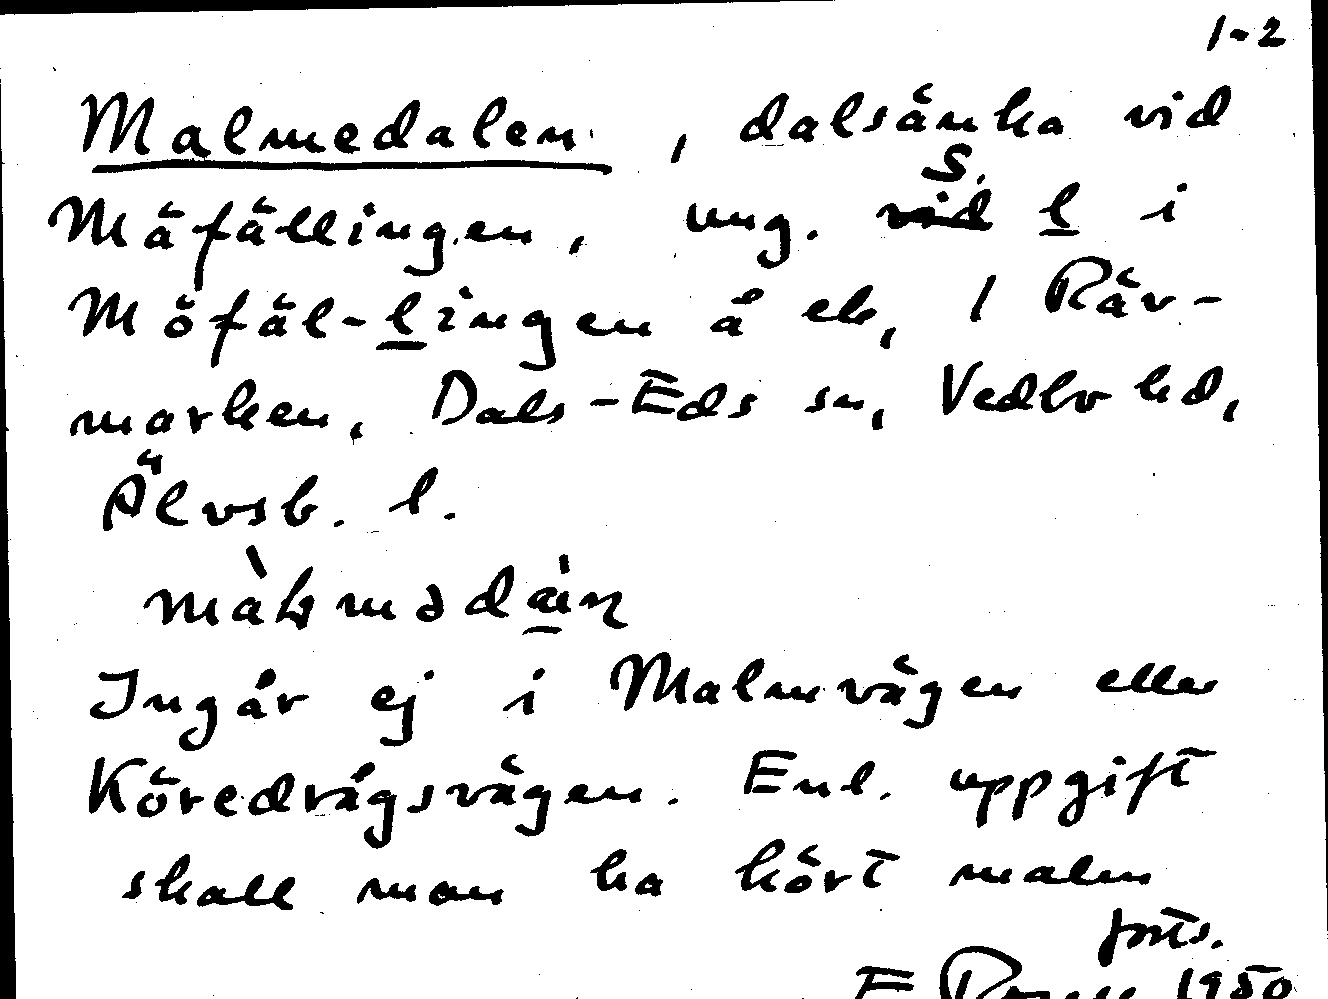 1-2
Malmedalen, dalsänka vid
S.
Mäfällingen, ung. vid l i
Möfäl-lingen å ek, 1 Räv-
marken, Dals-Eds sn, Vedbo hd,
Älvsb. l.
Ingår ej i Malmvägen eller
Köredrågsvägen. Enl. uppgift
skall man ha kört malm
forts.
1950